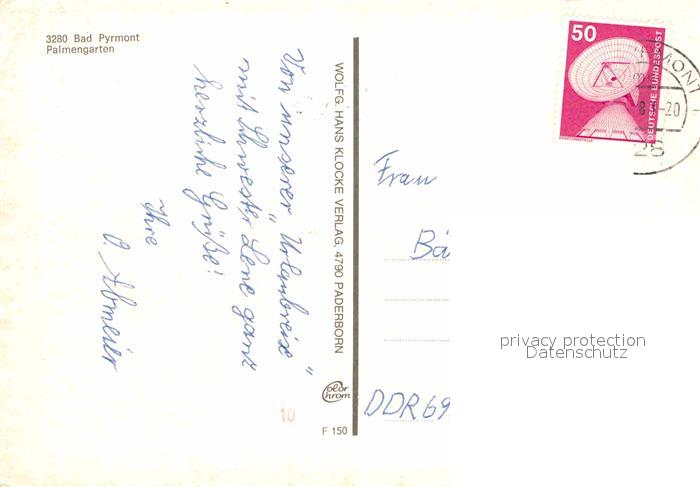 3280 Bad Pyrmont
Palmengarten
Von unserer "Urlaubreise"
mit Schwester Lene ganz
herzliche Grüße!
Ihre
O. Abmeier
WOLFG. HANS KLOCKE VERLAG, 4790 PADERBORN
Color
Chrom
10
F 150
50
DEUTSCHE BUNDESPOST
MONT
-20
28
Frau
Bä
DDR 69
privacy protection
Datenschutz